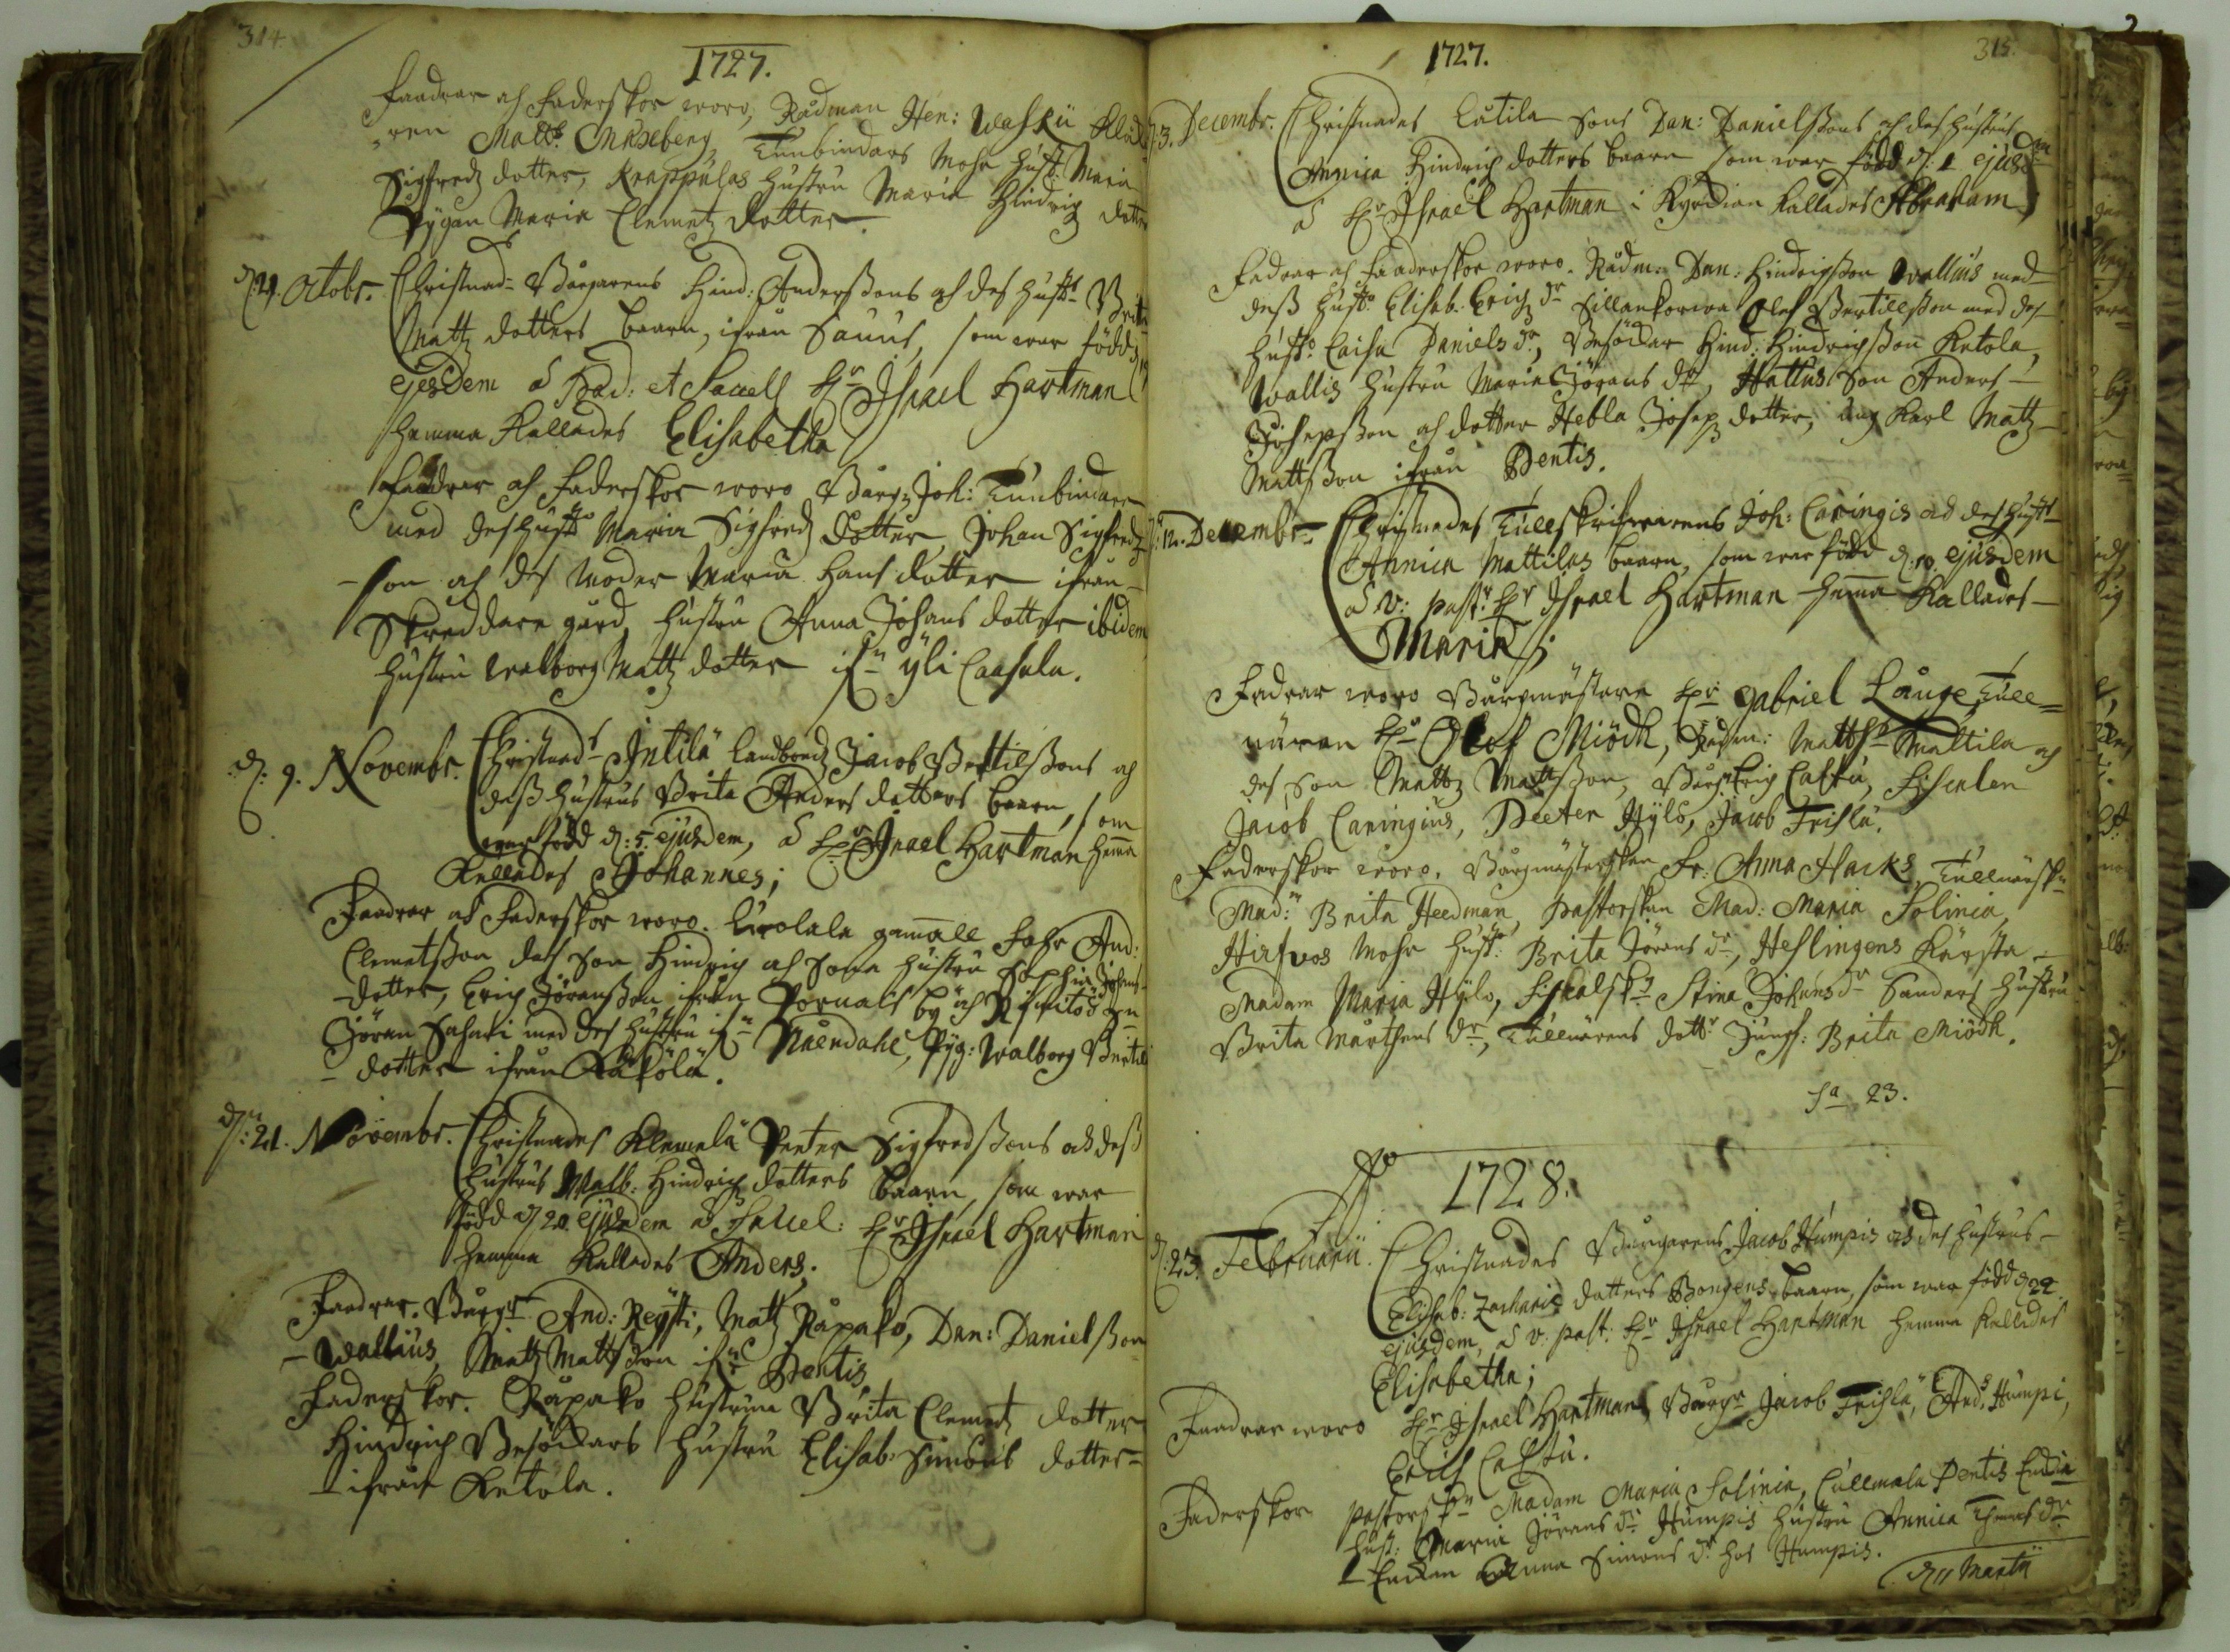 314.
1727.
Faadrar och Faderskor woro, Rådman Hen: Waskü
ren Matts Muxeberg, Tunbindars Mohr hust. Maria
Sigfredz dotter, Krappulas hustru Maria Hindrig dotter
Pijgan Maria Clemetz dotter.
Octobr. Christnad= Borgarens Hind: Anderssons och des hust= Brita
Mattz dotters baarn, ifrån Sauus, som war född
ejusdem å Sacell Hr Israel Hartman
hemma kallades Elisabetha
Faadrar och Faderskor woro Borg: Joh: Tunbindare
med des hust Maria Sigfredz dotter, Johan Sigfredz
son och des Moder Maria Hans dotter ifrån
Skreddare gård, hustru Anna Johans dotter ibidem
hustru Walborg Mattz dotter ifn Yli Caasala.
d. 9. Novembr. Christnad= Intilä landbondz Jacob Bertilssons och
dess hustrus Brita Anders dotters baarn, som
war född d: 5. ejusdem, å Hr Israel Hartman hema
kallades Johannes;
Faadrar och Faderskor woro. gamall Fahr And:
Clemetsson dess son Hindrich och sona hustru Sophia Johans
dotter, Erich Jöransson ifrån Pornais by och
Jöran Sasaki med des hustru ifn Nåendahl, Pig: Walborg Bertils
dotter ifrån Räfälä.
d: 21. Novembr. Christnades Klemelä Peeter Sigfredssons och dess
hustrus Walb: Hindrich dotters baarn, som war
född d 20 ejusdem å Sacel: Hr Israel Hartman
hemma kallades Anders.
Faadrar. Borgr And: Reijsti, Matz Räpako, Dan: Danielsson
Wallius, Matz Mattsson ifn Pentis
Faderskor. Räpako hustrun Brita Clemetz dotter
Hindrich Besökars hustru Elisab: Simons dotter
ifrån Ketola.
1727.
315.
3. Decembr. Christnades Lutila Sons Dan: Danielssons och des hustrus
Annica Hindrich dotters baarn som war född d. 1 ejusdm
å Hr Israel Hartman i Kyrckian kallades Abraham
Fadrar och Faaderskor woro. Rådm: Dan: Hindrichsson Wallius med
dess hust: Elisab. Erichz dr Sillankorwa Olof Bertillsson med des
hust: Caisa Daniels dr, Besökar Hind: Hindrichsson Ketola,
Wallis hustru Maria Jörans dr, Hattus son Anders
Josepsson och dotter Hebla Josepz dotter, ung karl Matz
Mattsson ifrån Pentis.
12. Decembr. Christnades Tullskrifwarens Joh: Caringis och des hust
Annica Mattilas baarn, som war född d. 10. ejusdem
å v: past: Hr Israel Hartman hema kallades
Maria;
Fadrar woro Borgmästare Hr Gabriel Lauge, Tull=
nären Hr Olof Miödh, Rådm: Matths Mattila och
des son Mattz Mattsson, Borg: Erich Castu, Fiscalen
Jacob Caringius, Peeter Hylö, Jacob Frislä.
Faderskor woro. Borgmästerskan Fr: Anna Harks, Tullnärskn
Mad: Brita Heedman, Pastorskan Mad: Maria Solinia,
Hirfvos Mohr hust: Brita Jörans dr, Heslingens Kärsta
Madam Maria Hylo, Fiskalskn Stina Johans dr Sanders hustru
Brita Mårthens dr, Tullnärens dottr Jungf: Brita Miödh.
Sa 23.
Ao 1728.
d: 23. Februarii. Christnades Borgarens Jacob Humpis och des hustrus
Elisab: Zacharis dotters Bongens baarn, som war född d 22
ejusdem, å v: past: Hr Israel Hartman hemma kallades
Elisabetha;
Faadrar woro Hr Israel Hartman, Borgr Jacob Frislä, Ands Humpi,
Erich Castu.
Faderskor Pastorskn Madam Maria Solinia, Cullmala Pentis
hust: Maria Jörans dr Humpis hustru Annica Thomas dr
Enckan Anna Simons dr hos Humpis.
d 11 Martii